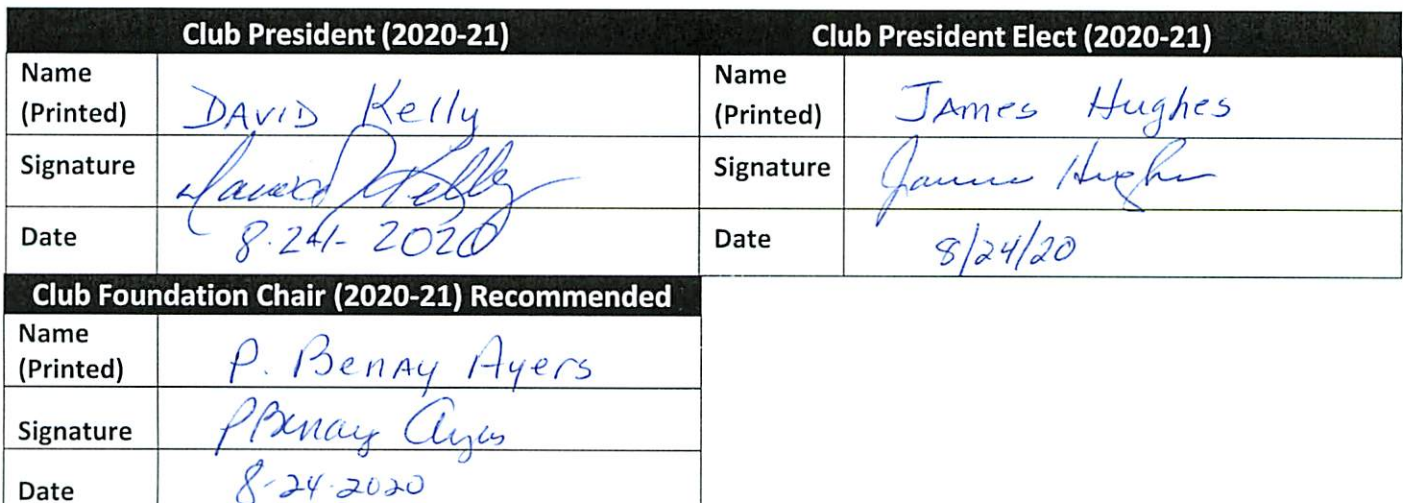 Club President (2020-21)
Name
(Printed)
DAVID Kelly
Signature
David Kelly
Date
8-24-2020
Club President Elect (2020-21)
Name
(Printed)
JAmes Hughes
Signature
James Hughes
Date
8/24/20
Club Foundation Chair (2020-21) Recommended
Name
(Printed)
P. BenAy Ayers
Signature
PBenay Ayers
Date
8-24-2020